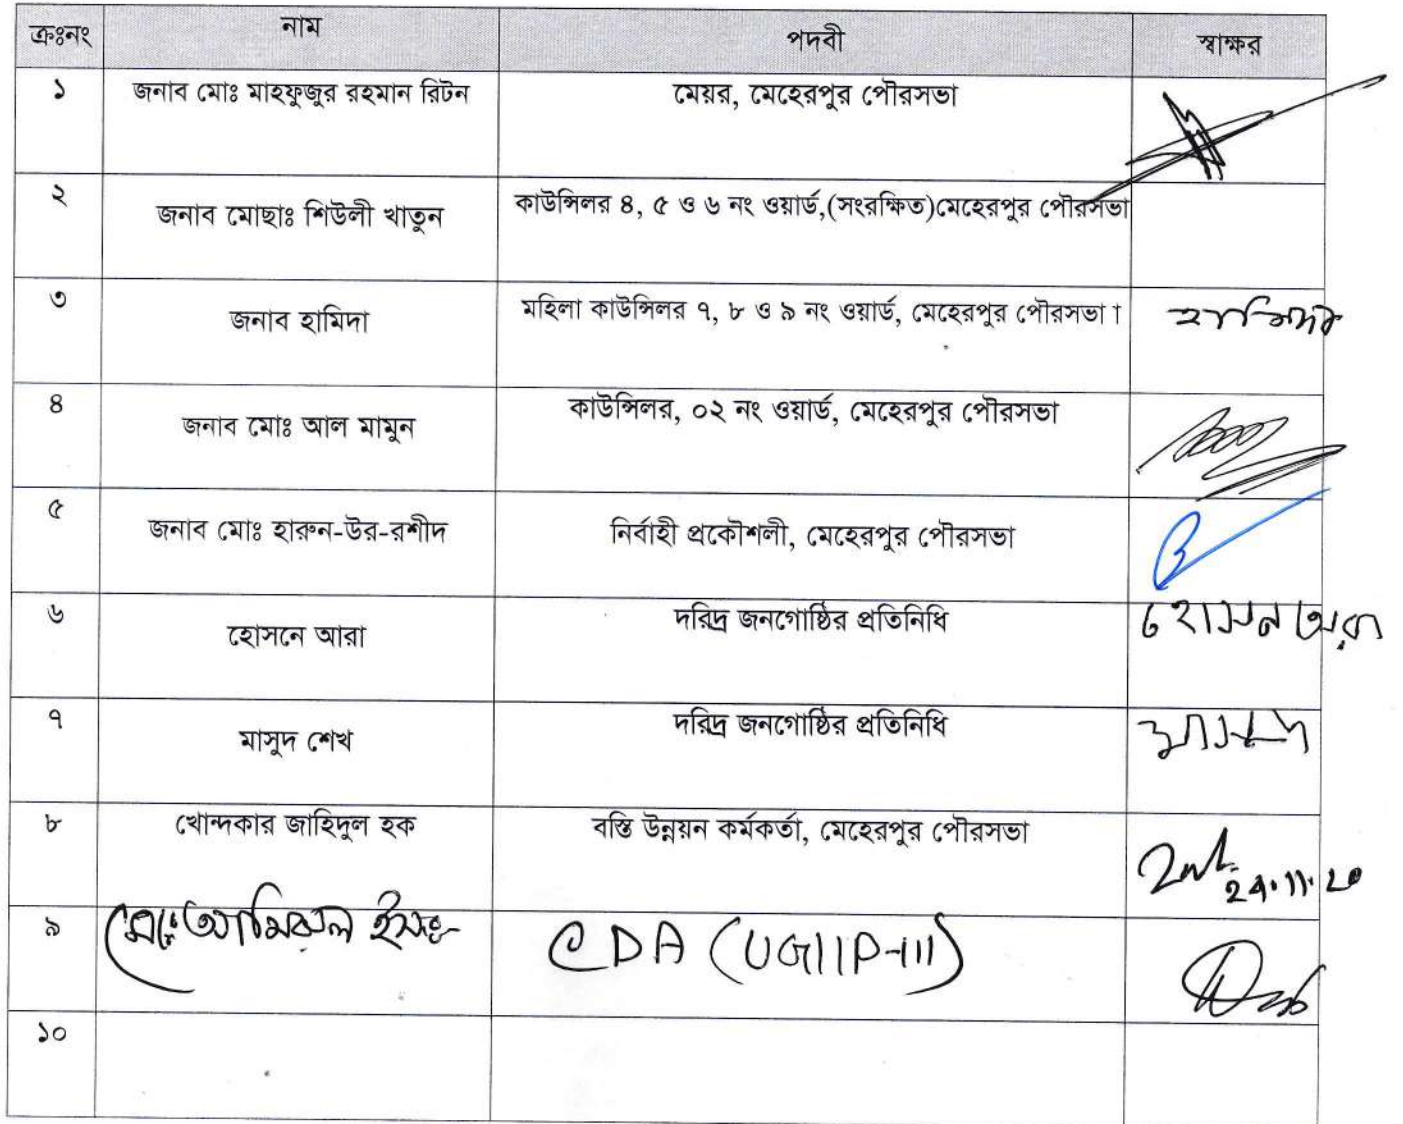 ক্রঃনং নাম পদবী স্বাক্ষর
১ জনাব মোঃ মাহফুজুর রহমান রিটন মেয়র, মেহেরপুর পৌরসভা
২ জনাব মোছাঃ শিউলী খাতুন কাউন্সিলর ৪, ৫ ও ৬ নং ওয়ার্ড,(সংরক্ষিত)মেহেরপুর পৌরসভা
৩ জনাব হামিদা মহিলা কাউন্সিলর ৭, ৮ ও ৯ নং ওয়ার্ড, মেহেরপুর পৌরসভা। হামিদা
৪ জনাব মোঃ আল মামুন কাউন্সিলর, ০২ নং ওয়ার্ড, মেহেরপুর পৌরসভা
৫ জনাব মোঃ হারুন-উর-রশীদ নির্বাহী প্রকৌশলী, মেহেরপুর পৌরসভা
৬ হোসনে আরা দরিদ্র জনগোষ্ঠির প্রতিনিধি হোসন আরা
৭ মাসুদ শেখ দরিদ্র জনগোষ্ঠির প্রতিনিধি মাসুদ
৮ খোন্দকার জাহিদুল হক বস্তি উন্নয়ন কর্মকর্তা, মেহেরপুর পৌরসভা
৯ মোঃ আমিরুল ইসলাম CDA (UGIIP-III)
১০